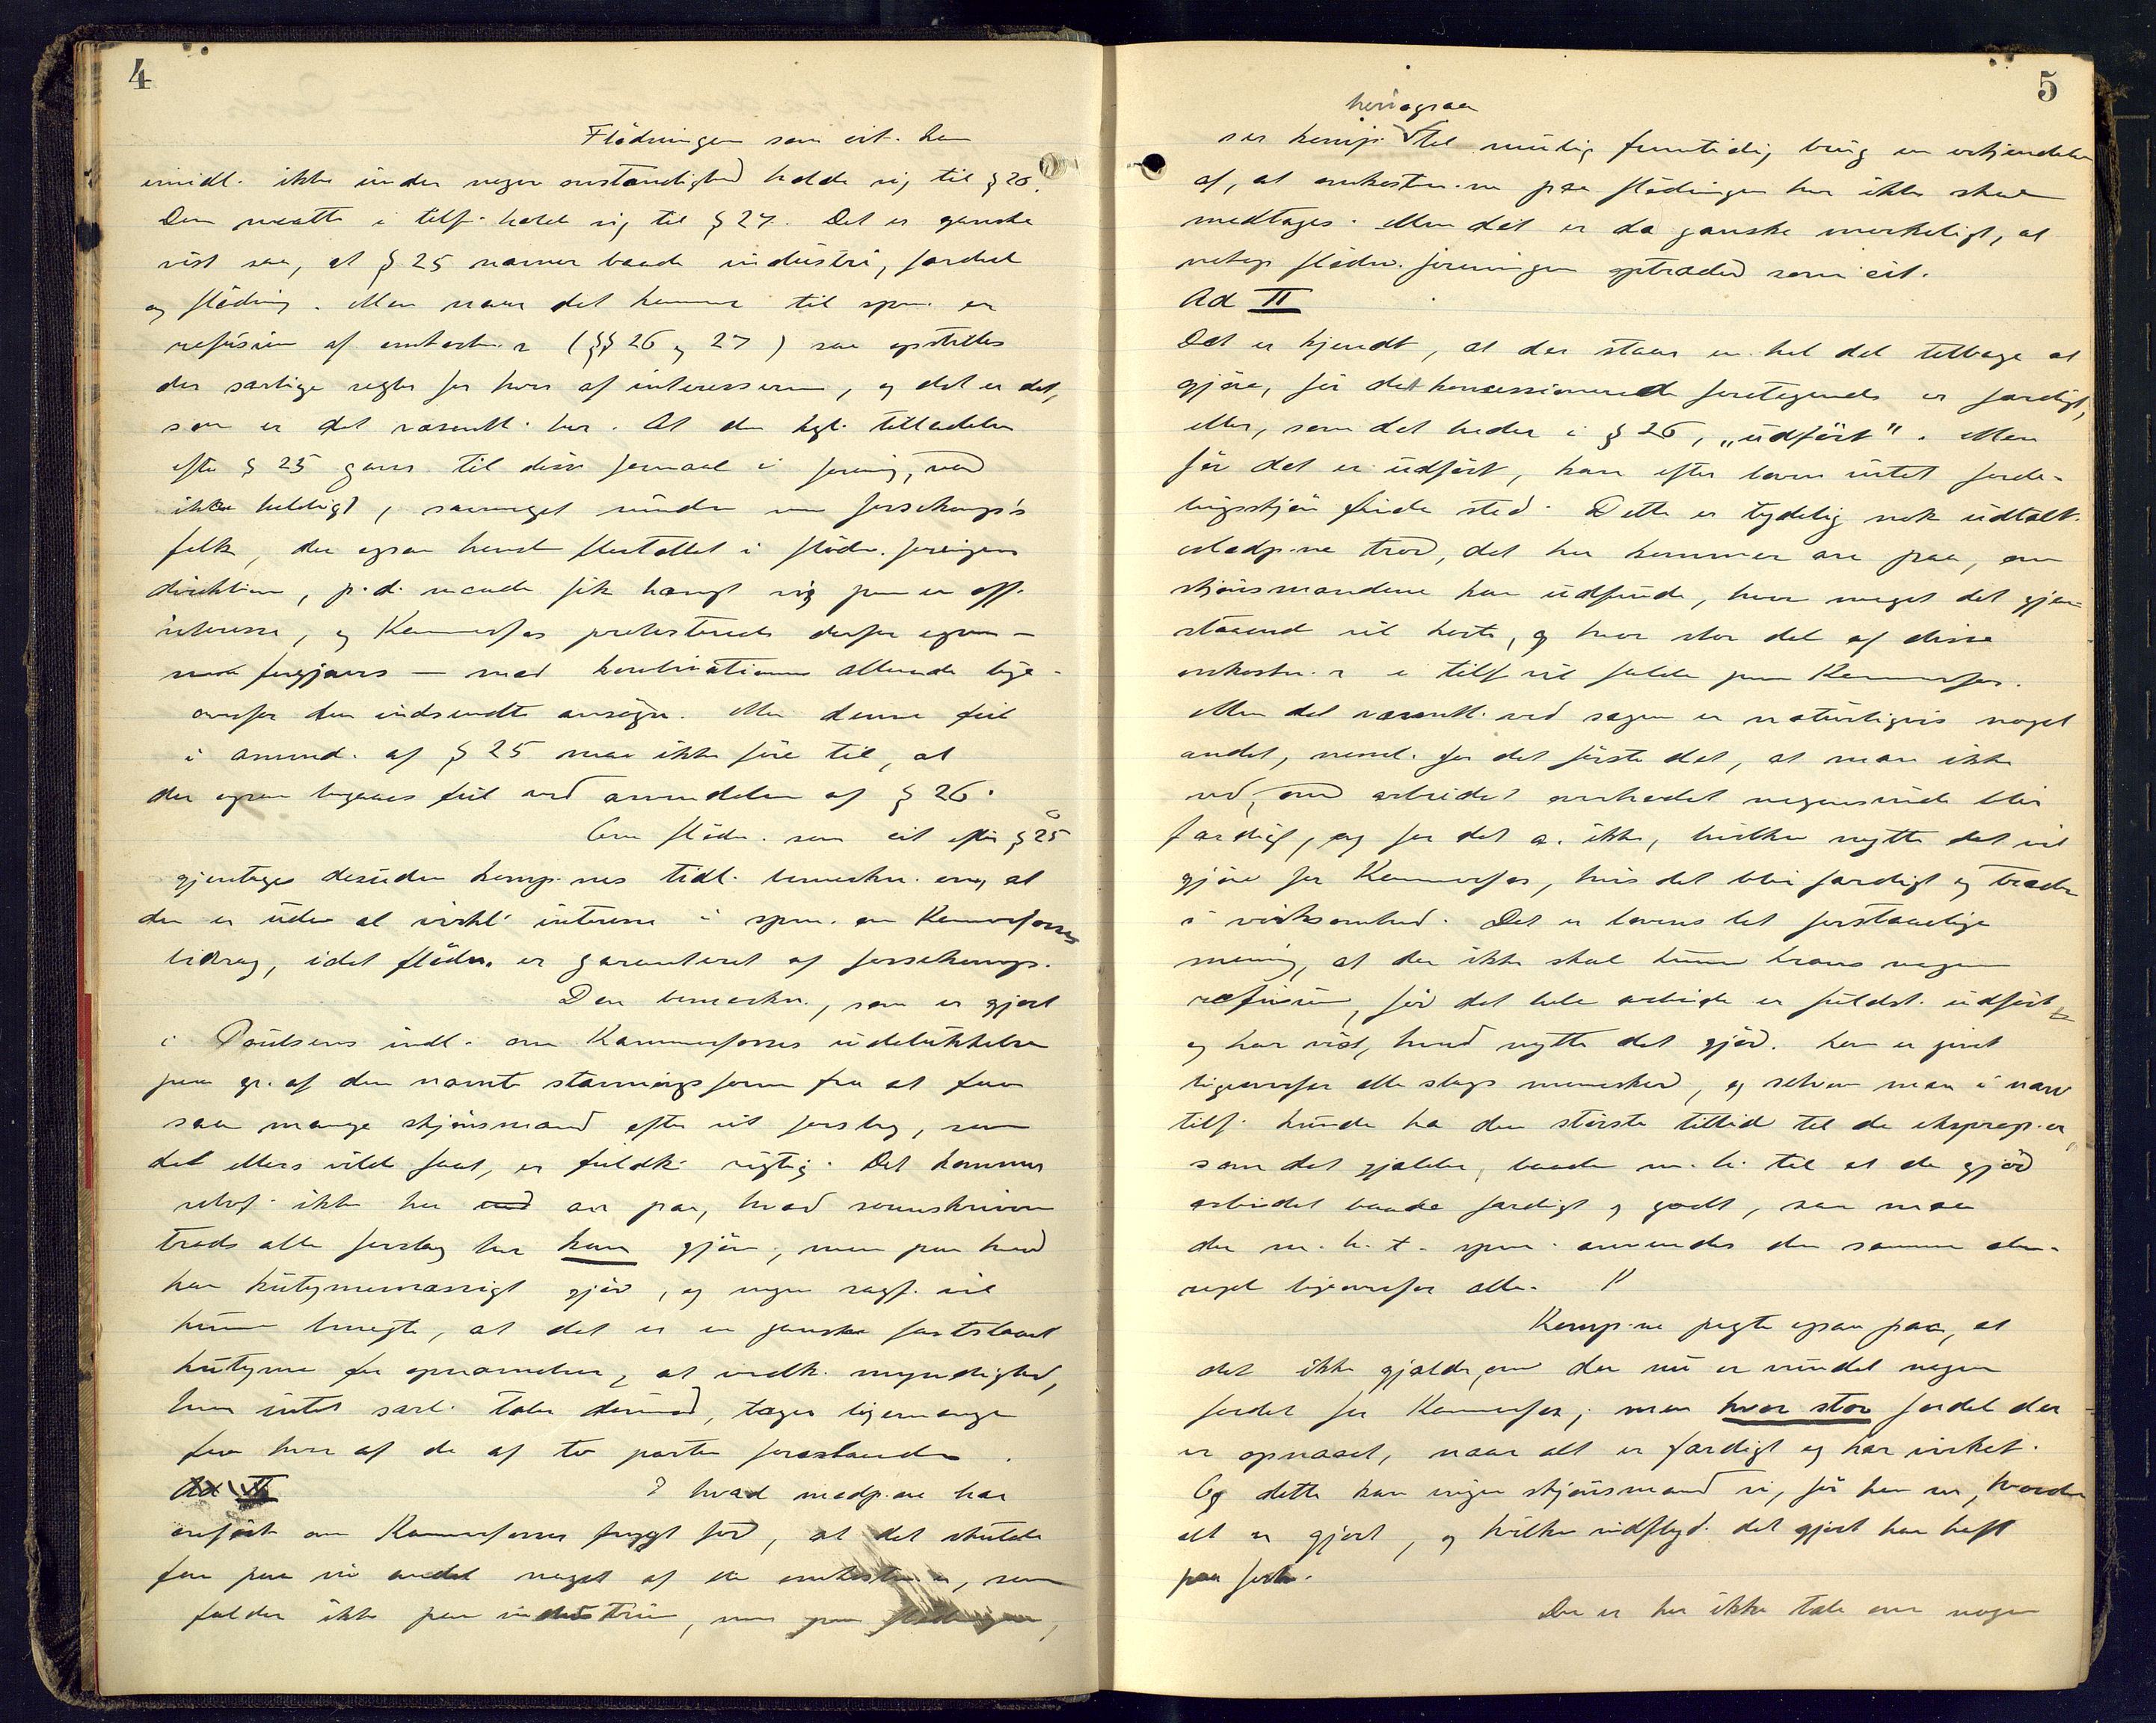 4
Flødningen som cit. kan
imidl. ikke under nogen omstændighed holde sig til § 26.
Den maatte i tilf. holde sig til § 27. Det er ganske
vist saa, at § 25 nævner baade industri, jordud
og flødning. Men naar det kommer til spm. om
refusion af omkostn.r (§§ 26 og 27) saa opstilles
der særlige regler for hver af interesserne, og det er det,
som er det væsentl. her. At den kgl. tilladelse
efter § 25 gaves til disse formaal i forening, var
ikke heldigt, saameget mindre som
folk, der ogsaa havde flertallet i flødn. foreningens
direktion, p. d. maade fik hængt sig paa en off.
interesse, og Kammerfos protesterede derfor ogsaa —
men forgjæves — mod kombinationen allerede lige-
overfor den indsendte ansøgn. Men denne feil
i anvend. af § 25 maa ikke føre til, at
der ogsaa begaaes feil ved anvendelsen af § 26.
Om flødn. som cit efter § 25
gjentages desuden komp.nes tidl. bemerkn. om, at
den er uden al virkl. interesse i spm. om Kammerfosses
bidrag, idet flødn. er garanteret af
Den bemerkn., som er gjort
i Poulsens indl. om Kammerfosses udelukkelse
paa gr. af den nævnte stævningsform fra at faa
saa mange skjønsmænd efter sit forslag, som
det ellers vilde faat, er fuldk. rigtig. Det kommer
selvf. ikke her an paa, hvad sorenskriveren
trods alle forslag her kan gjøre, men paa hvad
han kutymemæssigt gjør, og ingen sagf. vil
kunne benegte, at det er en ganske fastslaaet
kutyme for opnævnelser, at vedk. myndighed,
hvor intet særl. taler derimod, tager ligemange
fra hver af de af to parter foreslaaede.
Ad II
I hvad modp.ne har
anført om Kammerfosses frygt for, at det skulde
faa paa sin andel noget af de omkostn.r, som
falder ikke paa industrien, men paa flødningen,
5
heri ogsaa
ser komp. til mulig fremtidig brug en erkjendelse
af, at omkostn.ne paa flødningen her ikke skal
medtages. Men det er da ganske merkeligt, at
netop flødn. foreningen optræder som cit.
Ad II
Det er kjendt, at der staar en hel del tilbage at
gjøre, før det koncessionerede foretagende er færdigt,
eller, som det heder i § 26, „udført". Men
før det er udført, kan efter loven intet forde-
lingsskjøn finde sted. Dette er tydelig nok udtalt.
Modp.ne tror, det her kommer an paa, om
skjønsmændene kan udfinde, hvor meget det gjen-
staaende vil koste, og hvor stor del af disse
omkostn.r i tilf. vil falde paa Kammerfos.
Men det væsentl. ved sagen er naturligvis noget
andet, neml. for det første det, at man ikke
ved, om arbeidet overhodet nogensinde blir
færdigt, og for det a. ikke, hvilken nytte det vil
gjøre for Kammerfos, hvis det blir færdigt og træder
i virksomhed. Det er lovens let forstaaelige
mening, at der ikke skal kunne kræves nogen
refusion, før det hele arbeide er fuldst. udført
og har vist, hvad nytte det gjør. Loven er givet
ligeoverfor alle slags mennesker, og selvom man i nærv.
tilf. kunde ha den største tillid til de eksprop.er,
som det gjælder, baade m. h. til at de gjør
arbeidet baade færdigt og godt, saa maa
der m. h. t. spm. anvendes den samme alm.
regel ligeoverfor alle.
Komp.ne pegte ogsaa paa, at
det ikke gjælder, om der nu er vundet nogen
fordel for Kammerfos, men hvor stor fordel der
er opnaaet, naar alt er færdigt og har virket.
Og dette kan ingen skjønsmand si, før han ser, hvordan
alt er gjort, og hvilken indflyd. det gjort har havt
paa
Der er her ikke tale om nogen